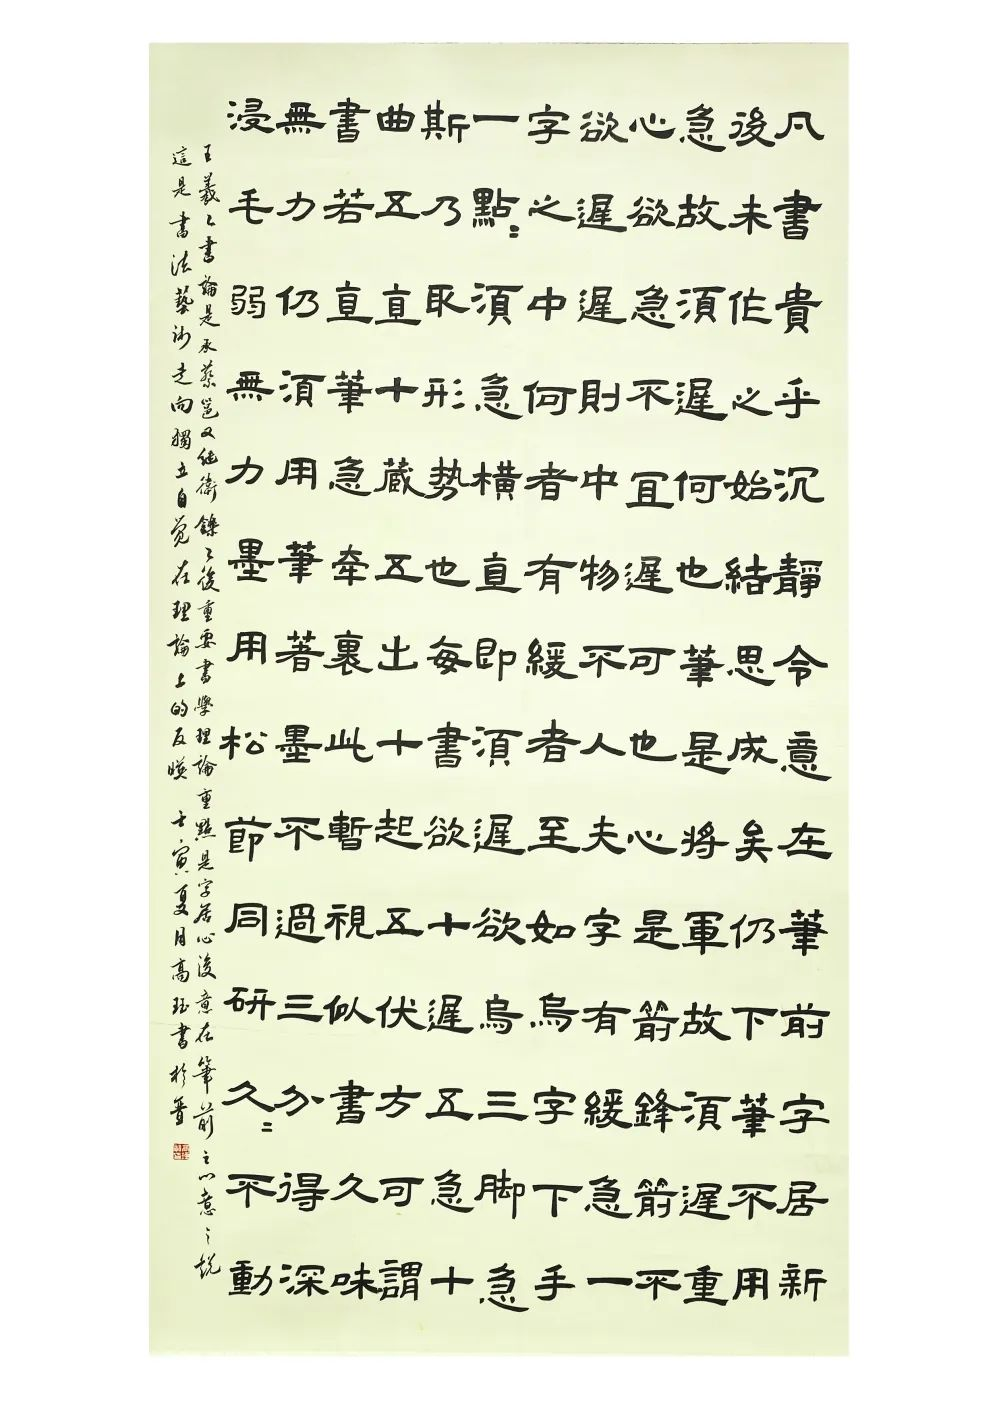 凡書貴乎沉靜令意在筆前字居新
後未作之始結思成矣仍下筆不用
急故須遲何也筆是將軍故須遲重
心欲急不宜遲可也心是箭鋒箭不
欲遲遲則中物不人夫字有緩急一
字之中何者有緩者至如烏字下手
一點〻須急橫直即須遲欲烏三脚急
斯乃取形勢也每書欲十遲五急十
曲五直十藏五出十起五伏方可謂
書若直筆急牽裏此暫視似書久味
無力仍須用筆著墨不過三分得深
浸毛弱無力墨用松節同研久〻不動
王羲之書論是承蔡邕又继衛鑠之後重要書學理論重點是字居心後意在筆前之心意之説
這是書法藝術走向獨立自覺在理論上的反映 壬寅夏月高珏書於晉